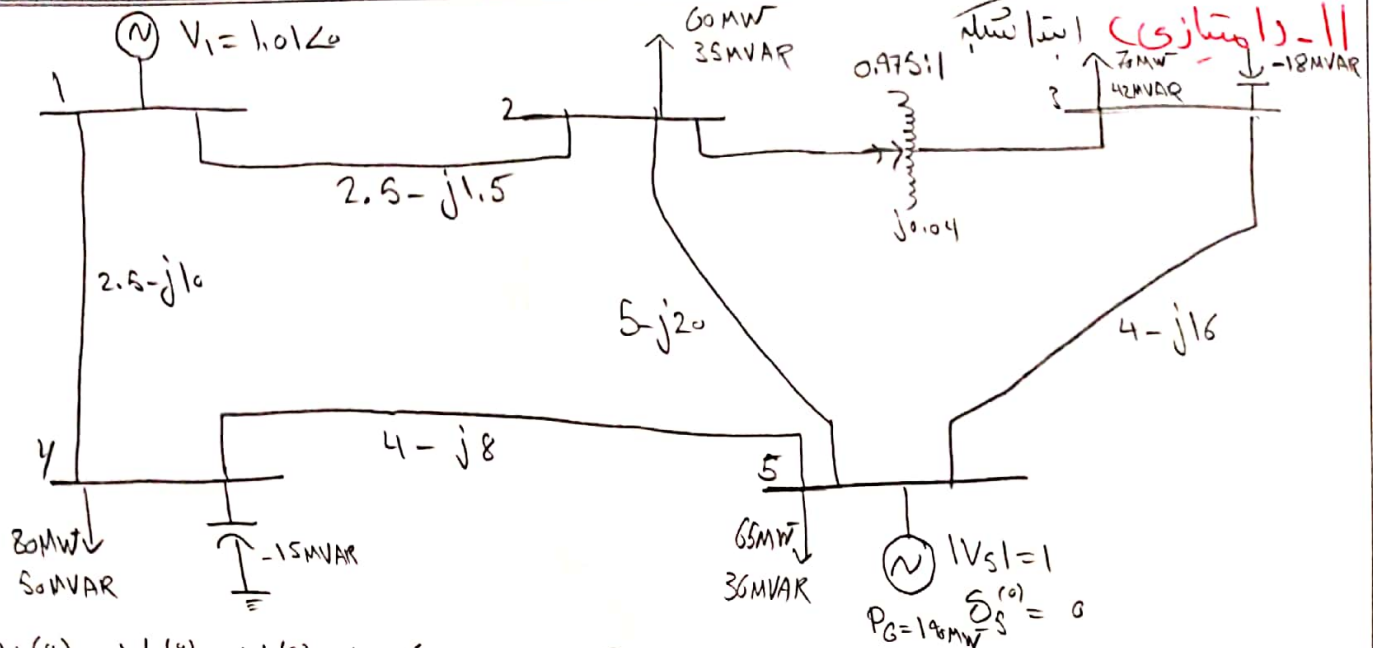 11- (امتیازی) ابتدا شبکه
V₁ = 1.01∠0
60MW
35MVAR
0.975:1
70MW
42MVAR
-18MVAR
1
2
3
2.5-j1.5
j0.04
2.5-j10
5-j20
4-j16
4
4-j8
5
80MW
50MVAR
-15MVAR
65MW
36MVAR
|V₅|=1
δ₅⁽⁰⁾ = 0